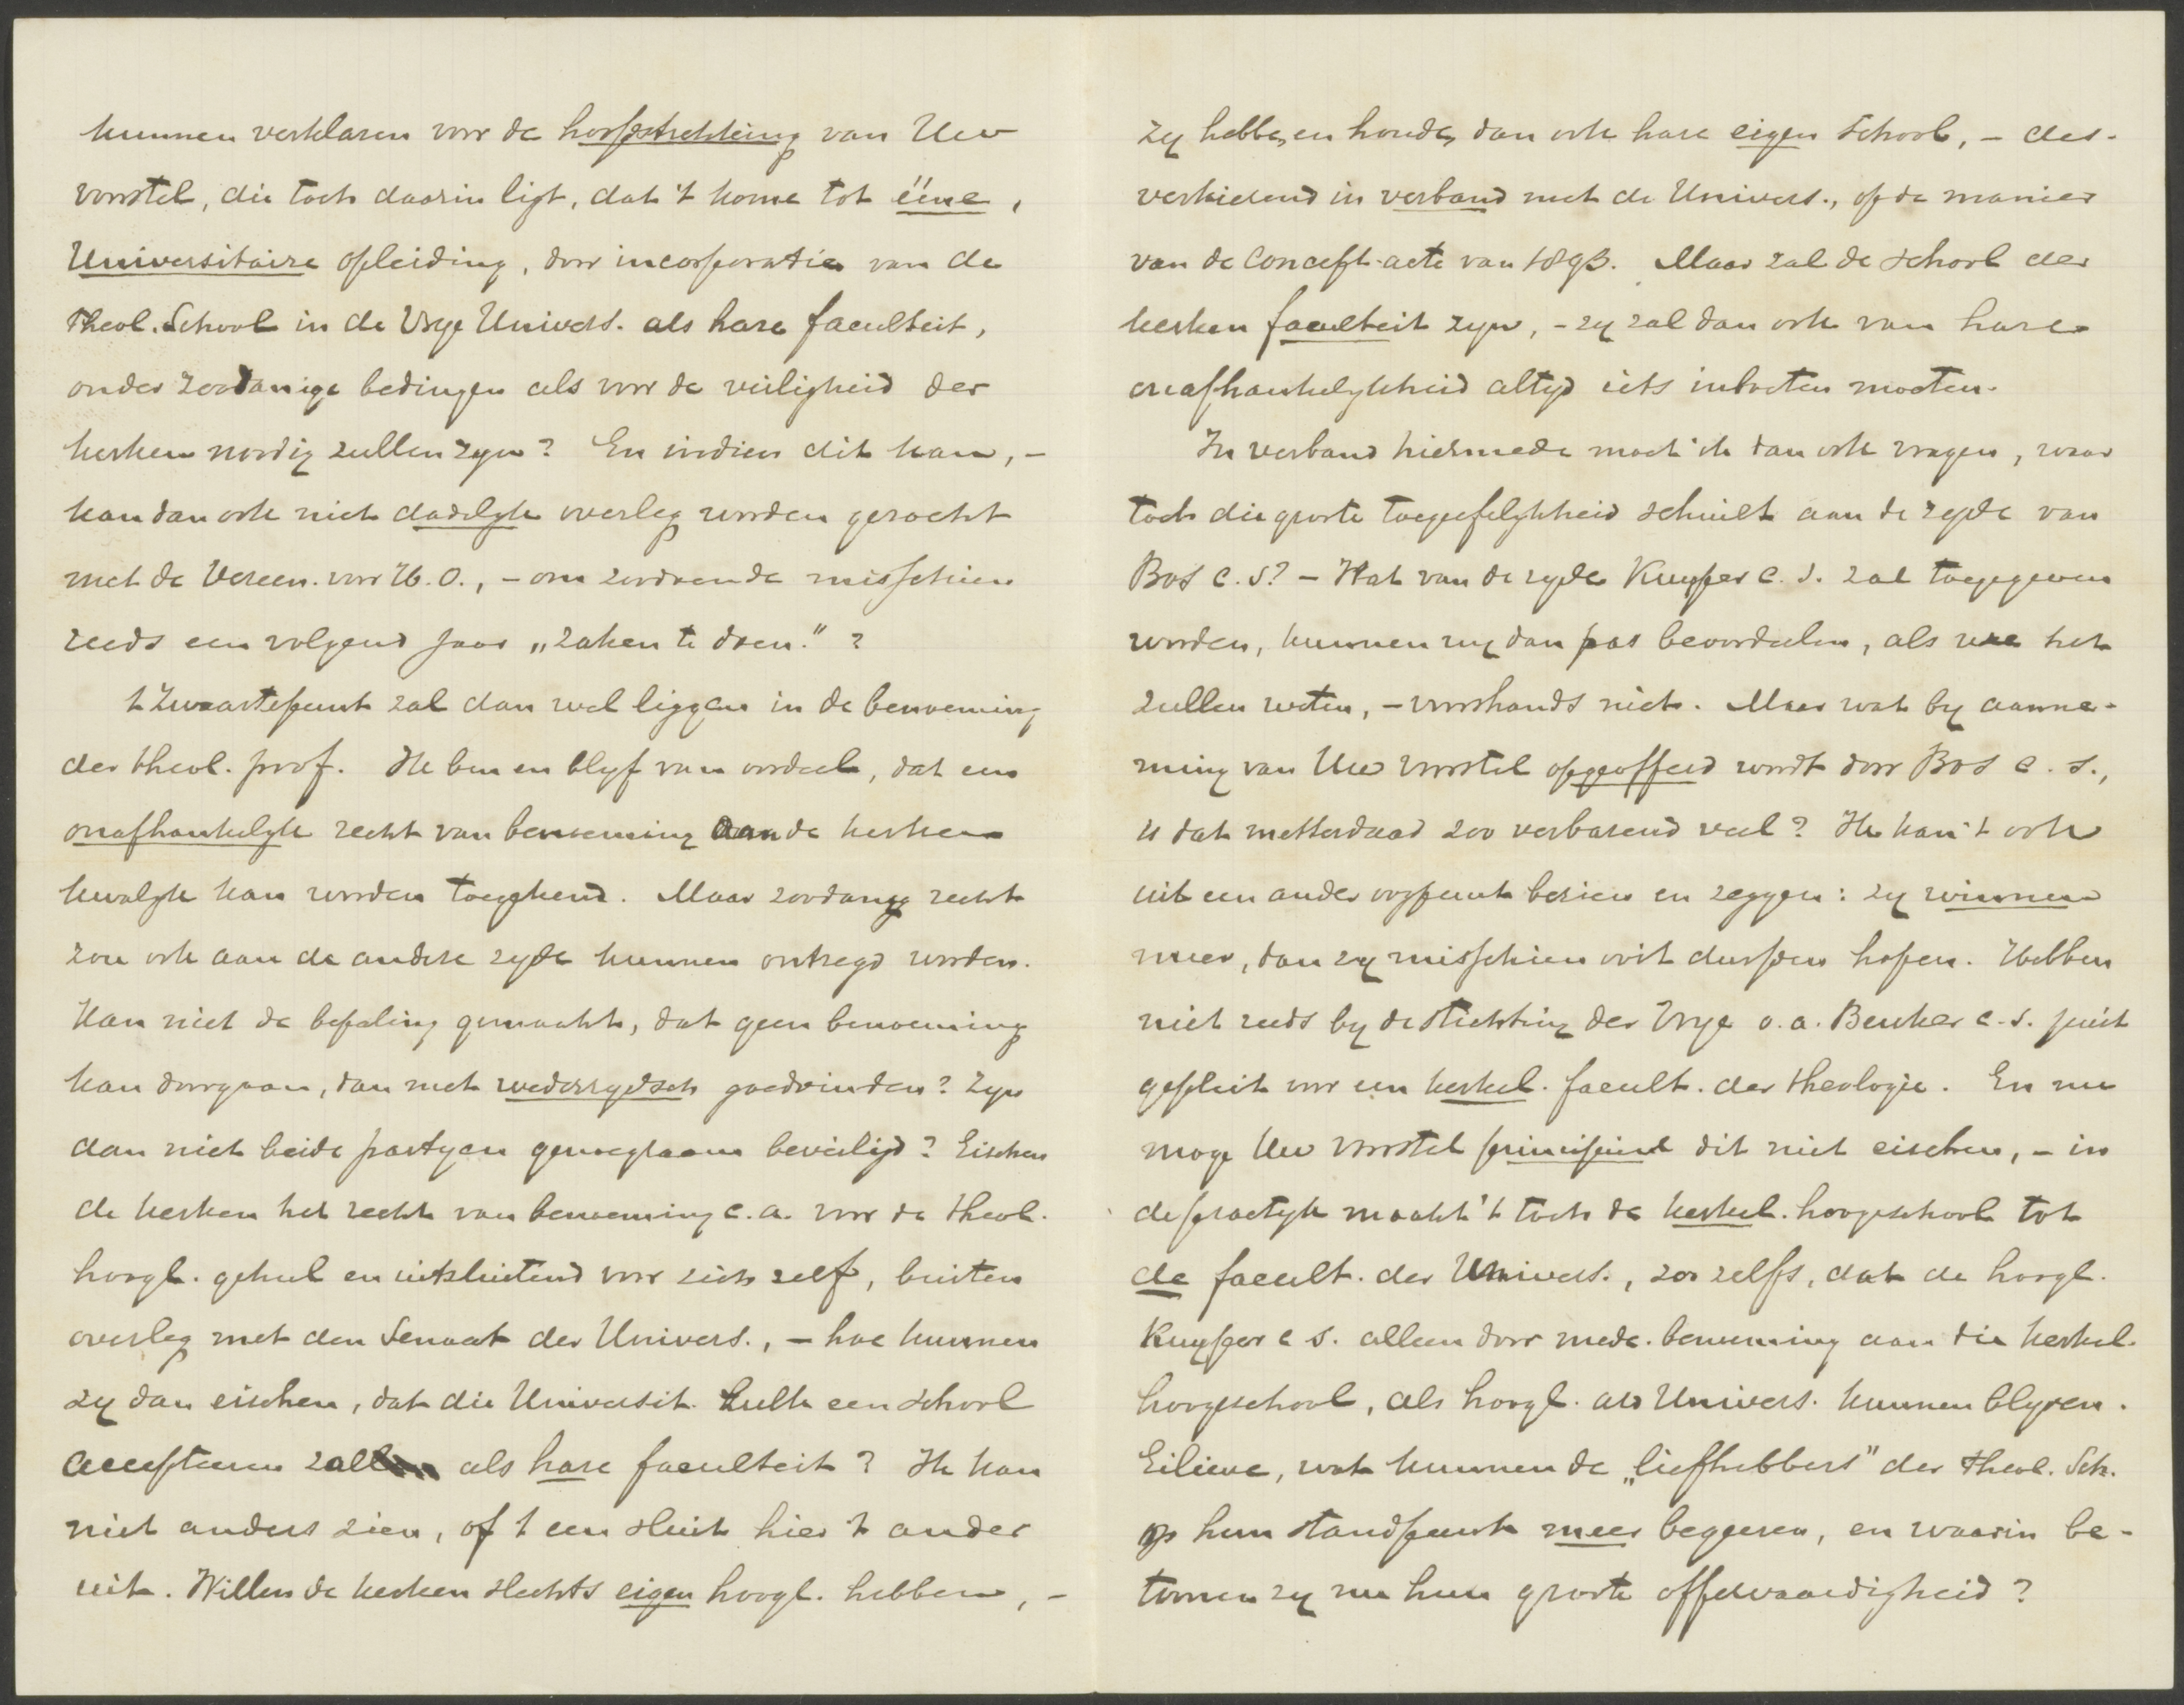 kunnen verklaren voor de hoofdstrekking van Uw
voorstel, die toch daarin ligt, dat 't kome tot ééne,
Universitaire opleiding, door incorporatie van de
Theol. School in de Vrye Univers. als hare faculteit,
onder zoodanige bedingen als voor de veiligheid der
kerken noodig zullen zyn? En indien dit kan, -
kan dan ook niet dadelyk overleg worden gezocht
met de Vereen. voor H.O., - om zoodoende misschien
reeds een volgend jaar „zaken te doen."?
't Zwaartepunt zal dan wel liggen in de benoeming
der theol. prof. Ik ben en blyf van oordeel, dat een
onafhankelyk recht van benoeming aan de kerken
kwalyk kan worden toegekend. Maar zoodanig recht
zou ook aan de andere zyde kunnen ontzegd worden.
Kan niet de bepaling gemaakt, dat geen benoeming
kan doorgaan, dan met wederzydsch goedvinden? Zyn
dan niet beide partyen genoegzaam beveiligd? Eischen
de kerken het recht van benoeming c.a. voor de theol.
hoogl. geheel en uitsluitend voor zich zelf, buiten
overleg met den Senaat der Univers., - hoe kunnen
zy dan eischen, dat die Universit. zulk een school
accepteeren zal als hare faculteit? Ik kan
niet anders zien, of 't een sluit hier 't ander
uit. Willen de kerken slechts eigen hoogl. hebben, -
zy hebben en houden dan ook hare eigen School, - des-
verkiezend in verband met de Univers., op de manier
van de Concept-acte van 1893. Maar zal de school der
kerken faculteit zyn, - zy zal dan ook van hare
onafhankelykheid altyd iets inboeten moeten.
In verband hiermede moet ik dan ook vragen, waar
toch die groote toegefelykheid schuilt aan de zyde van
Bos c.s? - Wat van de zyde Kuyper c.s. zal toegegeven
worden, kunnen wy dan pas beoordeelen, als we het
zullen weten, - voorshands niet. Maar wat by aanne-
ming van Uw voorstel opgeofferd wordt door Bos c.s.,
is dat metterdaad zoo verbazend veel? Ik kan 't ook
uit een ander oogpunt bezien en zeggen: zy winnen
meer, dan zy misschien ooit durfden hopen. Hebben
niet reeds by de stichting der Vrye o.a. Beuker c.s. juist
gepleit voor een kerkel. facult. der theologie. En nu
moge Uw voorstel principieel dit niet eischen, - in
de practyk maakt 't toch de kerkel. hoogeschool tot
de facult. der Univers., zoo zelfs, dat de hoogl.
Kuyper c s. alleen door mede-benoeming aan die kerkel.
hoogeschool, als hoogl. a/d Univers. kunnen blyven.
Eilieve, wat kunnen de „liefhebbers" der Theol. Sch.
op hun standpunt meer begeeren, en waarin be-
toonen zy nu hun groote offervaardigheid?